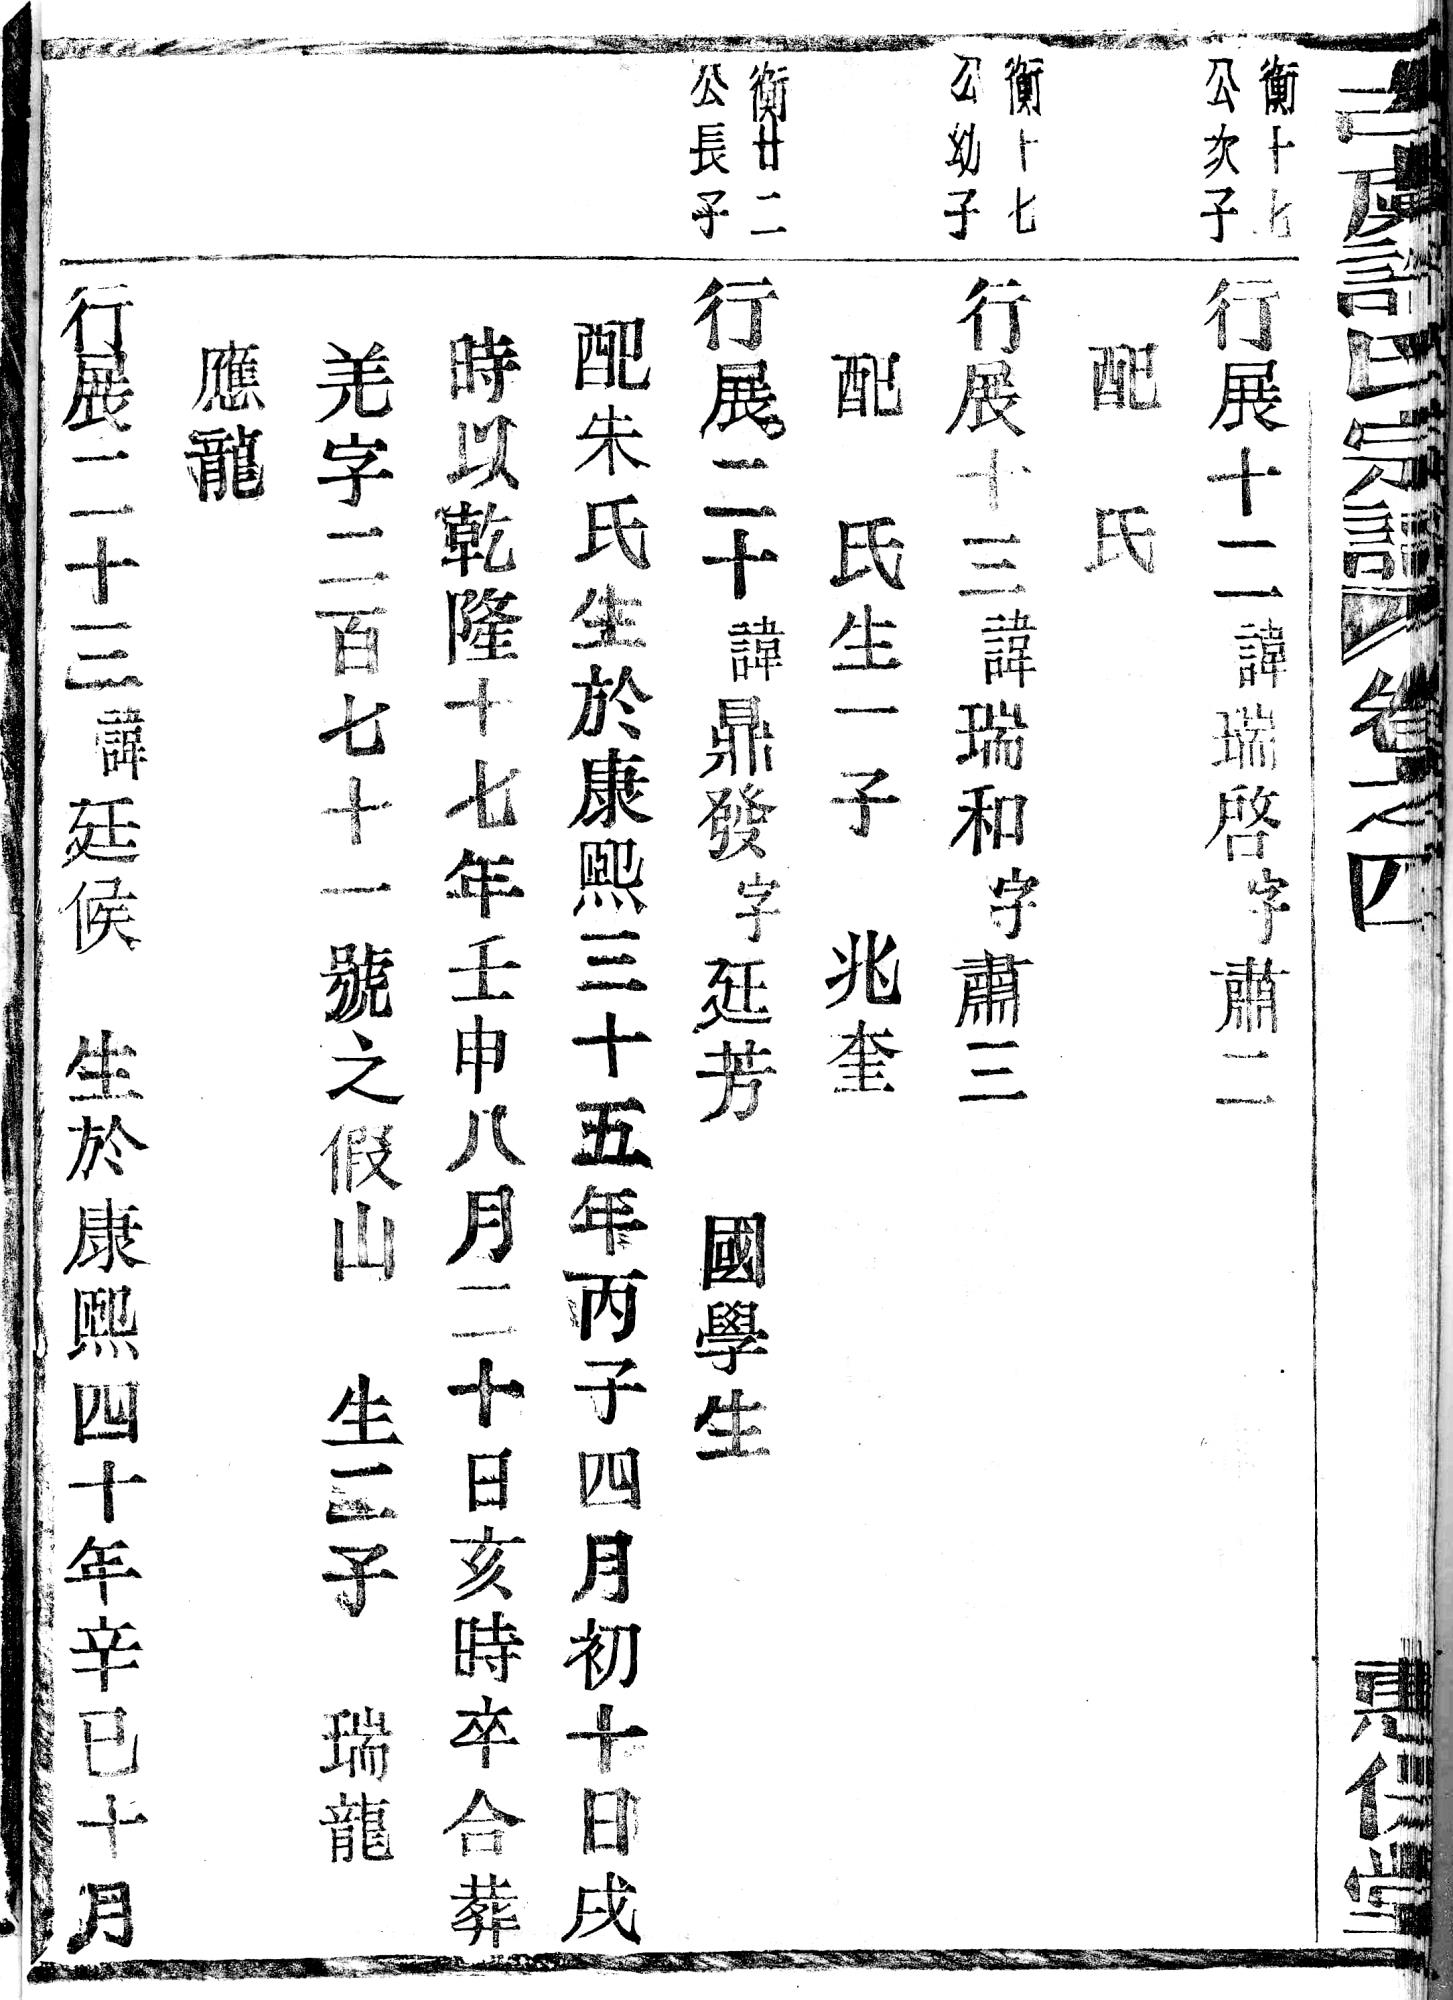 古虞許氏宗譜 卷之四 堂
衡十七
公次子
行展十二諱瑞啓字肅二
配 氏
衡十七
公幼子
行展十三諱瑞和字肅三
配 氏生一子 兆奎
衡廿二
公長子
行展二十諱鼎發字廷芳 國學生
配朱氏生於康熙三十五年丙子四月初十日戌
時以乾隆十七年壬申八月二十日亥時卒合葬
羌字二百七十一號之假山 生二子 瑞龍
應龍
行展二十三諱廷候 生於康熙四十年辛巳十月